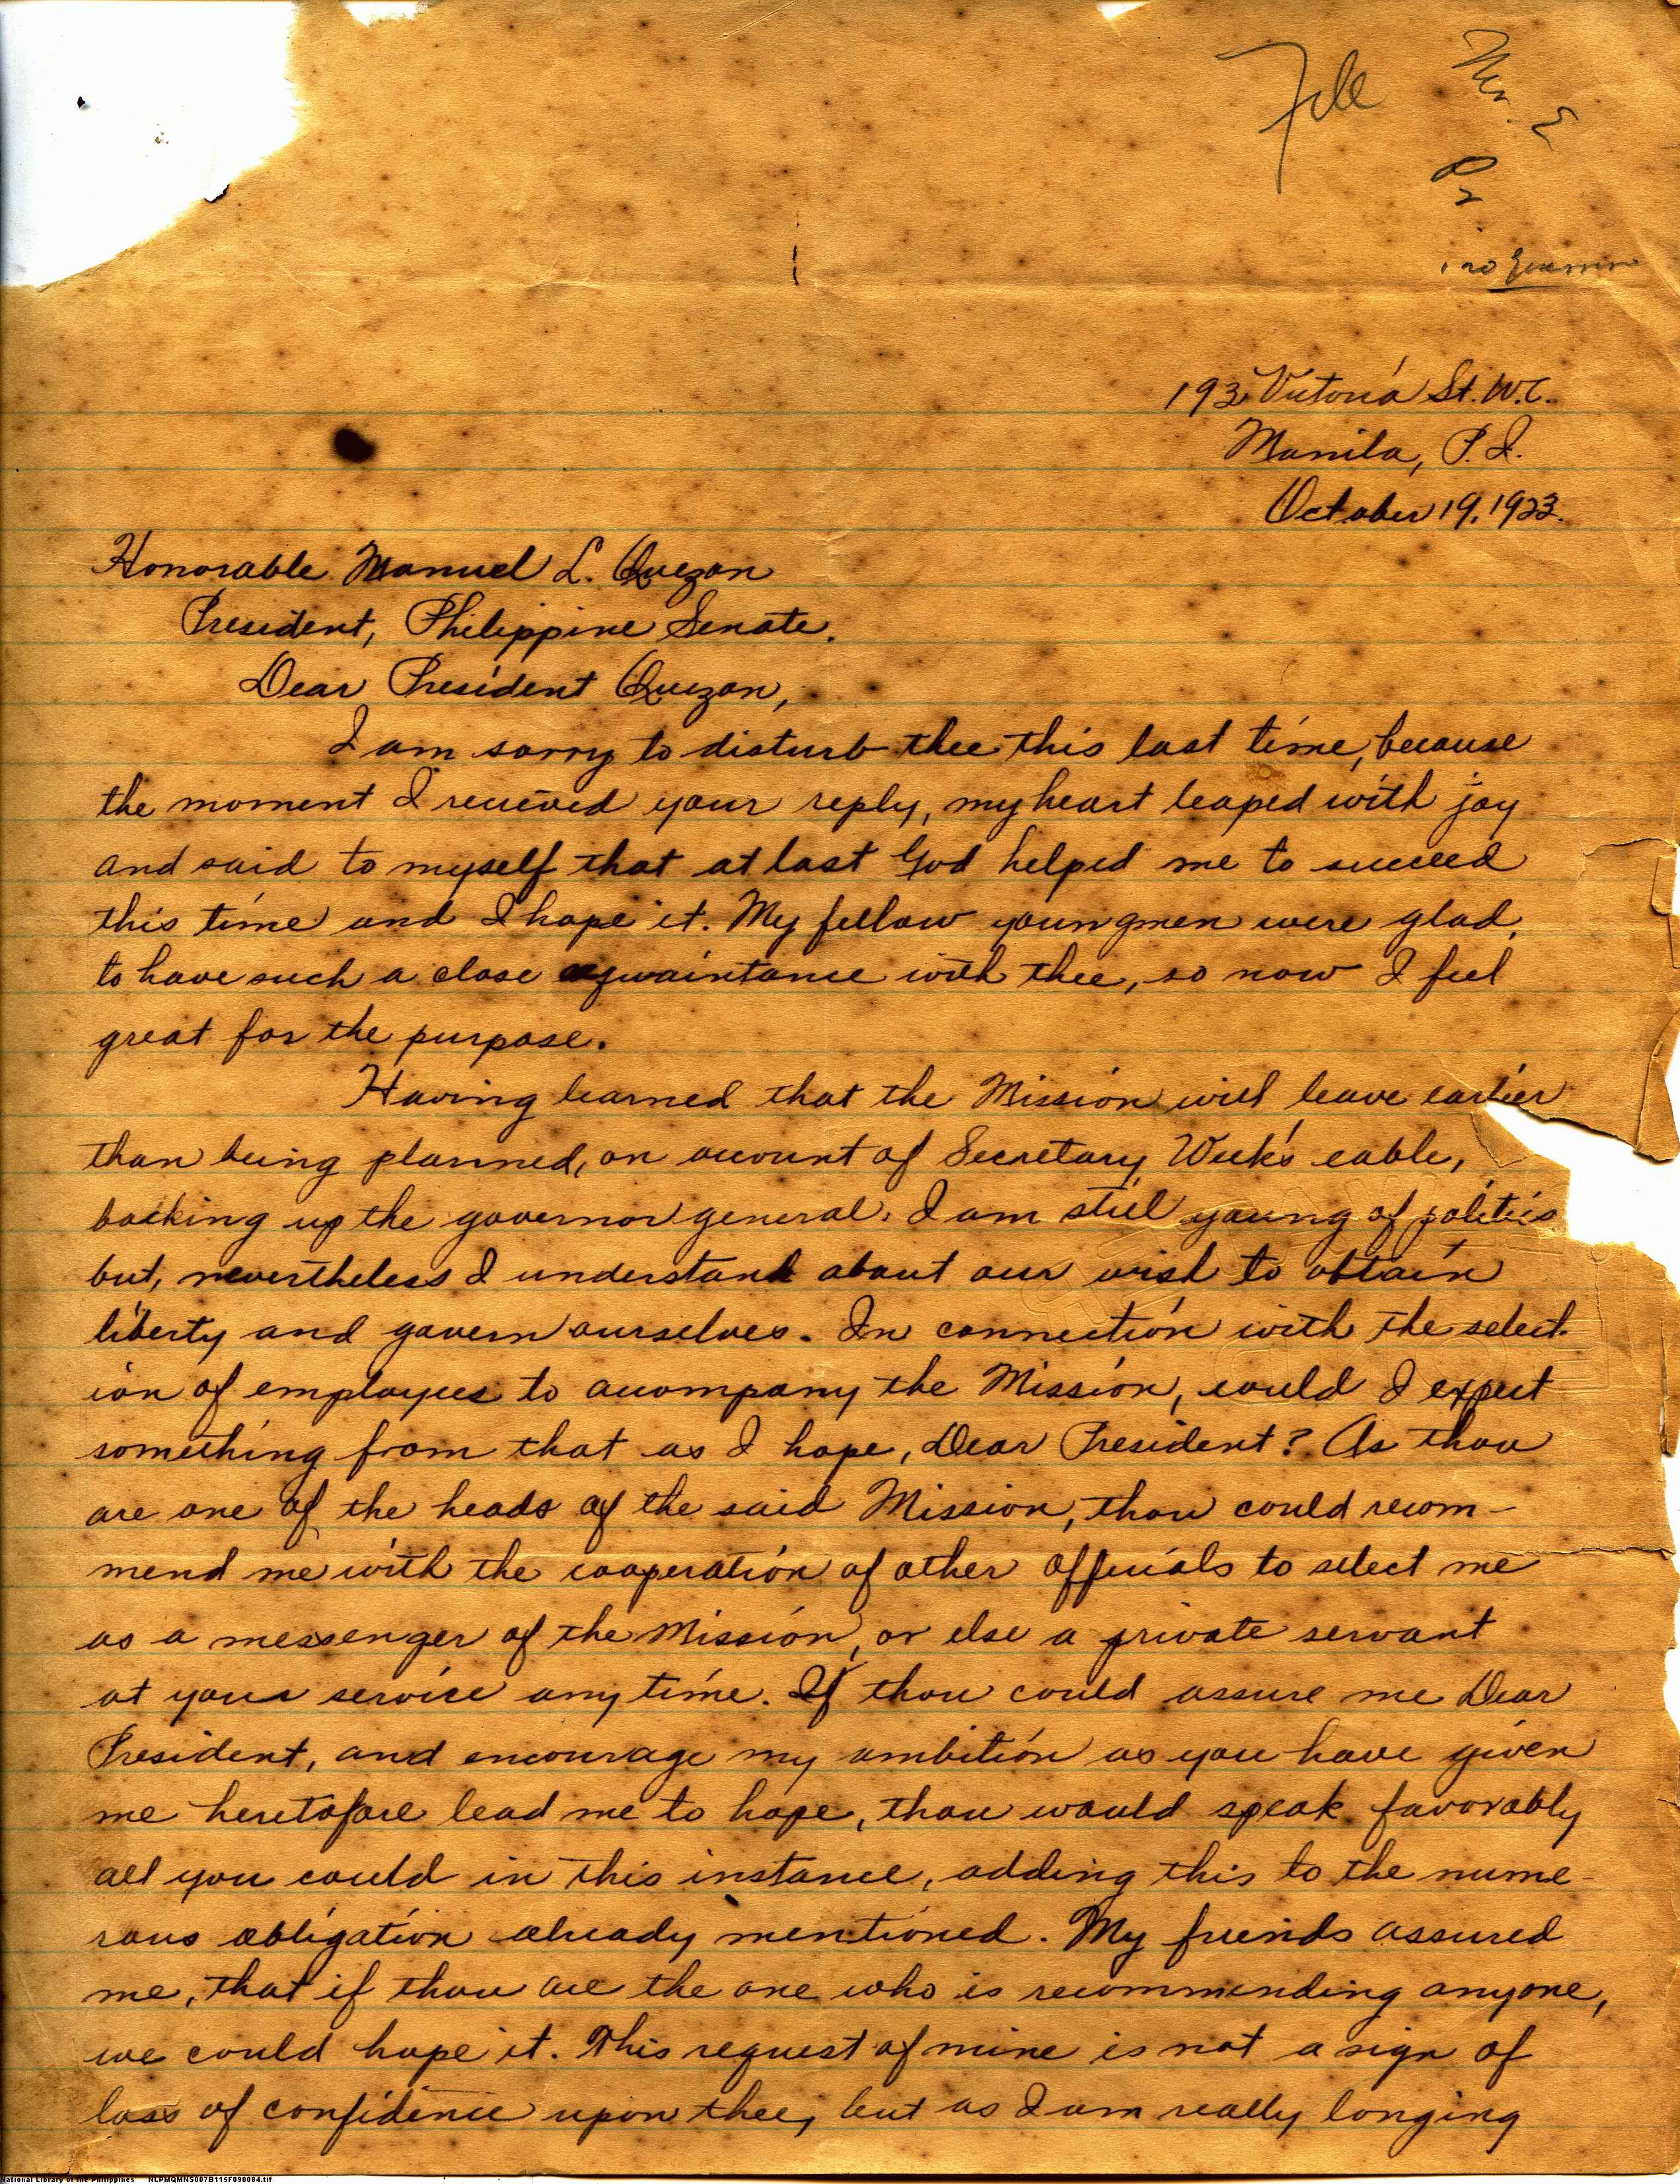 File
193 Victoria St. W.C.
Manila, P.I.
October 19, 1923.
Honorable Manuel L. Quezon
President, Philippine Senate.
Dear President Quezon,
I am sorry to disturb thee this last time, because
the moment I received your reply, my heart leaped with joy
and said to myself that at last God helped me to succeed
this time and I hope it. My fellow youngmen were glad,
to have such a close aqwaintance with thee, so now I feel
great for the purpose.
Having learned that the Mission will leave earlier
than being planned, on account of Secretary Week's cable,
backing up the governor general. I am still young of politics
but, nevertheless I understand about our wish to obtain
liberty and govern ourselves. In connection with the select-
ion of employees to acompany the Mission, could I expect
something from that as I hope, Dear President? As thou
are one of the heads of the said Mission, thou could recom-
mend me with the cooperation of other officials to select me
as a messenger of the Mission, or else a private servant
at your service anytime. If thou could assure me Dear
President, and encourage my ambition as you have given
me heretofore lead me to hope, thou would speak favorably
all you could in this instance, adding this to the nume-
rous obligation already mentioned. My friends assured
me, that if thou are the one who is recommending anyone,
we could hope it. This request of mine is not a sign of
loss of confidence upon thee, but as I am really longing
National Library of the Philippines NLPMQMNS007B115F090084.tif